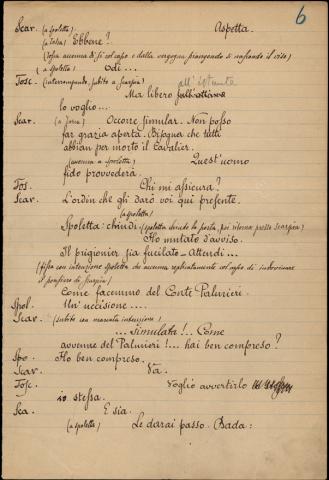 6
Scar. (a Spoletta) Aspetta.
(a Tosca) Ebbene?
(Tosca accenna di sì col capo e dalla vergogna piangendo si nasconde il viso)
(a Spoletta) Odi ...
Tosc. (interrompendo, subito a Scarpia) all'istante
Ma libero all'istante
lo voglio ...
Scar. (a Tosca) Occorre simular. Non posso
far grazia aperta. Bisogna che tutti
abbian per morto il cavalier.
(accenna a Spoletta) Quest'uomo
fido provvederà.
Tos. Chi mi assicura?
Scar. L'ordin che gli darò voi qui presente.
(a Spoletta)
Spoletta: chiudi. (Spoletta chiude la porta, poi ritorna presso Scarpia)
Ho mutato d'avviso.
Il prigionier sia fucilato - Attendi ...
(fissa con intenzione Spoletta che accenna replicatamente col capo di indovinare
il pensiero di Scarpia)
Come facemmo del Conte Palmieri.
Spol. Un'uccisione ....
Scar. (subito con marcata intenzione)
... Simulata!.. Come
avvenne del Palmieri!... hai ben compreso?
Spo. Ho ben compreso.
Scar. Va.
Tosc. Voglio avvertirlo
io stessa.
Sca. E sia.
(a Spoletta) Le darai passo. Bada: